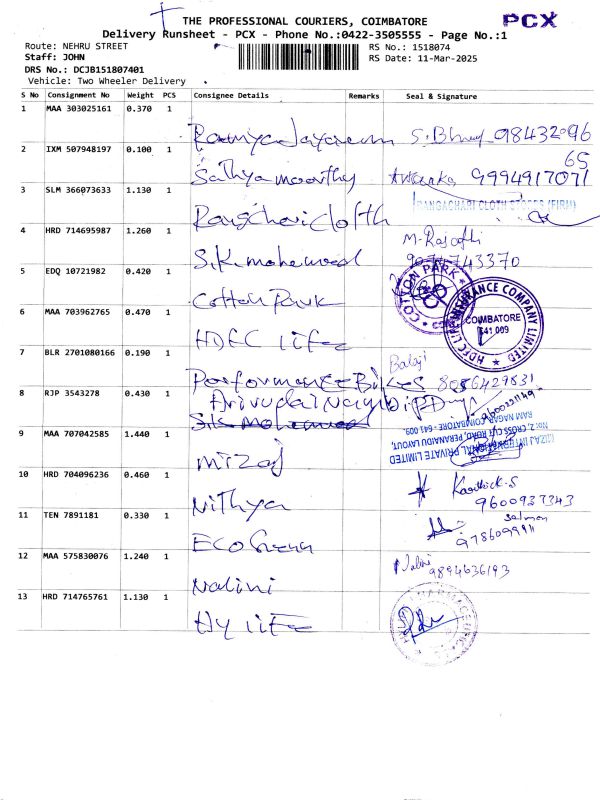 THE PROFESSIONAL COURIERS, COIMBATORE
PCX
Delivery Runsheet - PCX - Phone No.:0422-3505555 - Page No.:1
Route: NEHRU STREET
RS No.: 1518074
Staff: JOHN
RS Date: 11-Mar-2025
DRS No.: DCJB151807401
Vehicle: Two Wheeler Delivery
S No Consignment No Weight PCS Consignee Details Remarks Seal & Signature
1 MAA 303025161 0.370 1
S. 98432096
65
2 IXM 507948197 0.100 1 Sathyamoorthy 9994917071
3 SLM 366073633 1.130 1 Rangchari Cloth RANGACHARI CLOTH STORES (FIRM)
4 HRD 714695987 1.260 1 S.K. mohamed M-
5 EDQ 10721982 0.420 1 Cotton Park COTTON PARK
6 MAA 703962765 0.470 1 HDFC life HDFC LIFE INSURANCE COMPANY LIMITED COIMBATORE 641 009
7 BLR 2701080166 0.190 1 Performance Bikes Balaji 8056429831
8 RJP 3543278 0.430 1
S.K Mohamed
9 MAA 707042585 1.440 1 mirzaj MIZAJ INTERNATIONAL PRIVATE LIMITED
No: 2, CROSS CUT ROAD, PERANAIDU LAYOUT,
RAM NAGAR, COIMBATORE - 641 009.
10 HRD 704096236 0.460 1 Nithya Karthick-S
9600937343
11 TEN 7891181 0.330 1 Eco Green Salman
12 MAA 575830076 1.240 1 Nalini Nalini
9894636193
13 HRD 714765761 1.130 1 Hy life